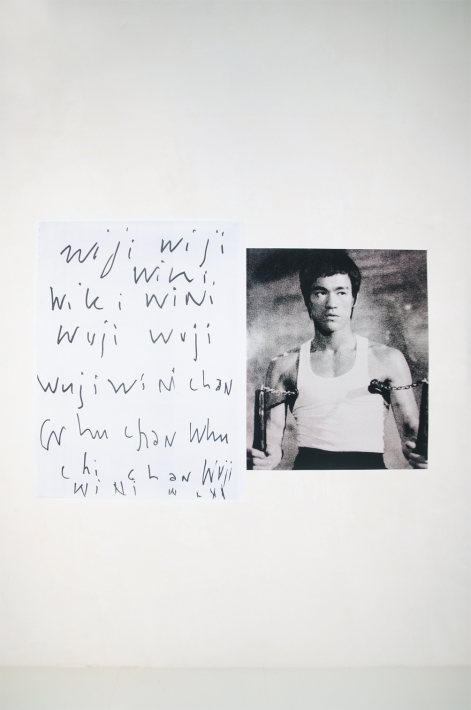 wiji wiji
wini
wiki wini
wuji wuji
wuji wini chan
whu chan whu
chi chan wuji
wini